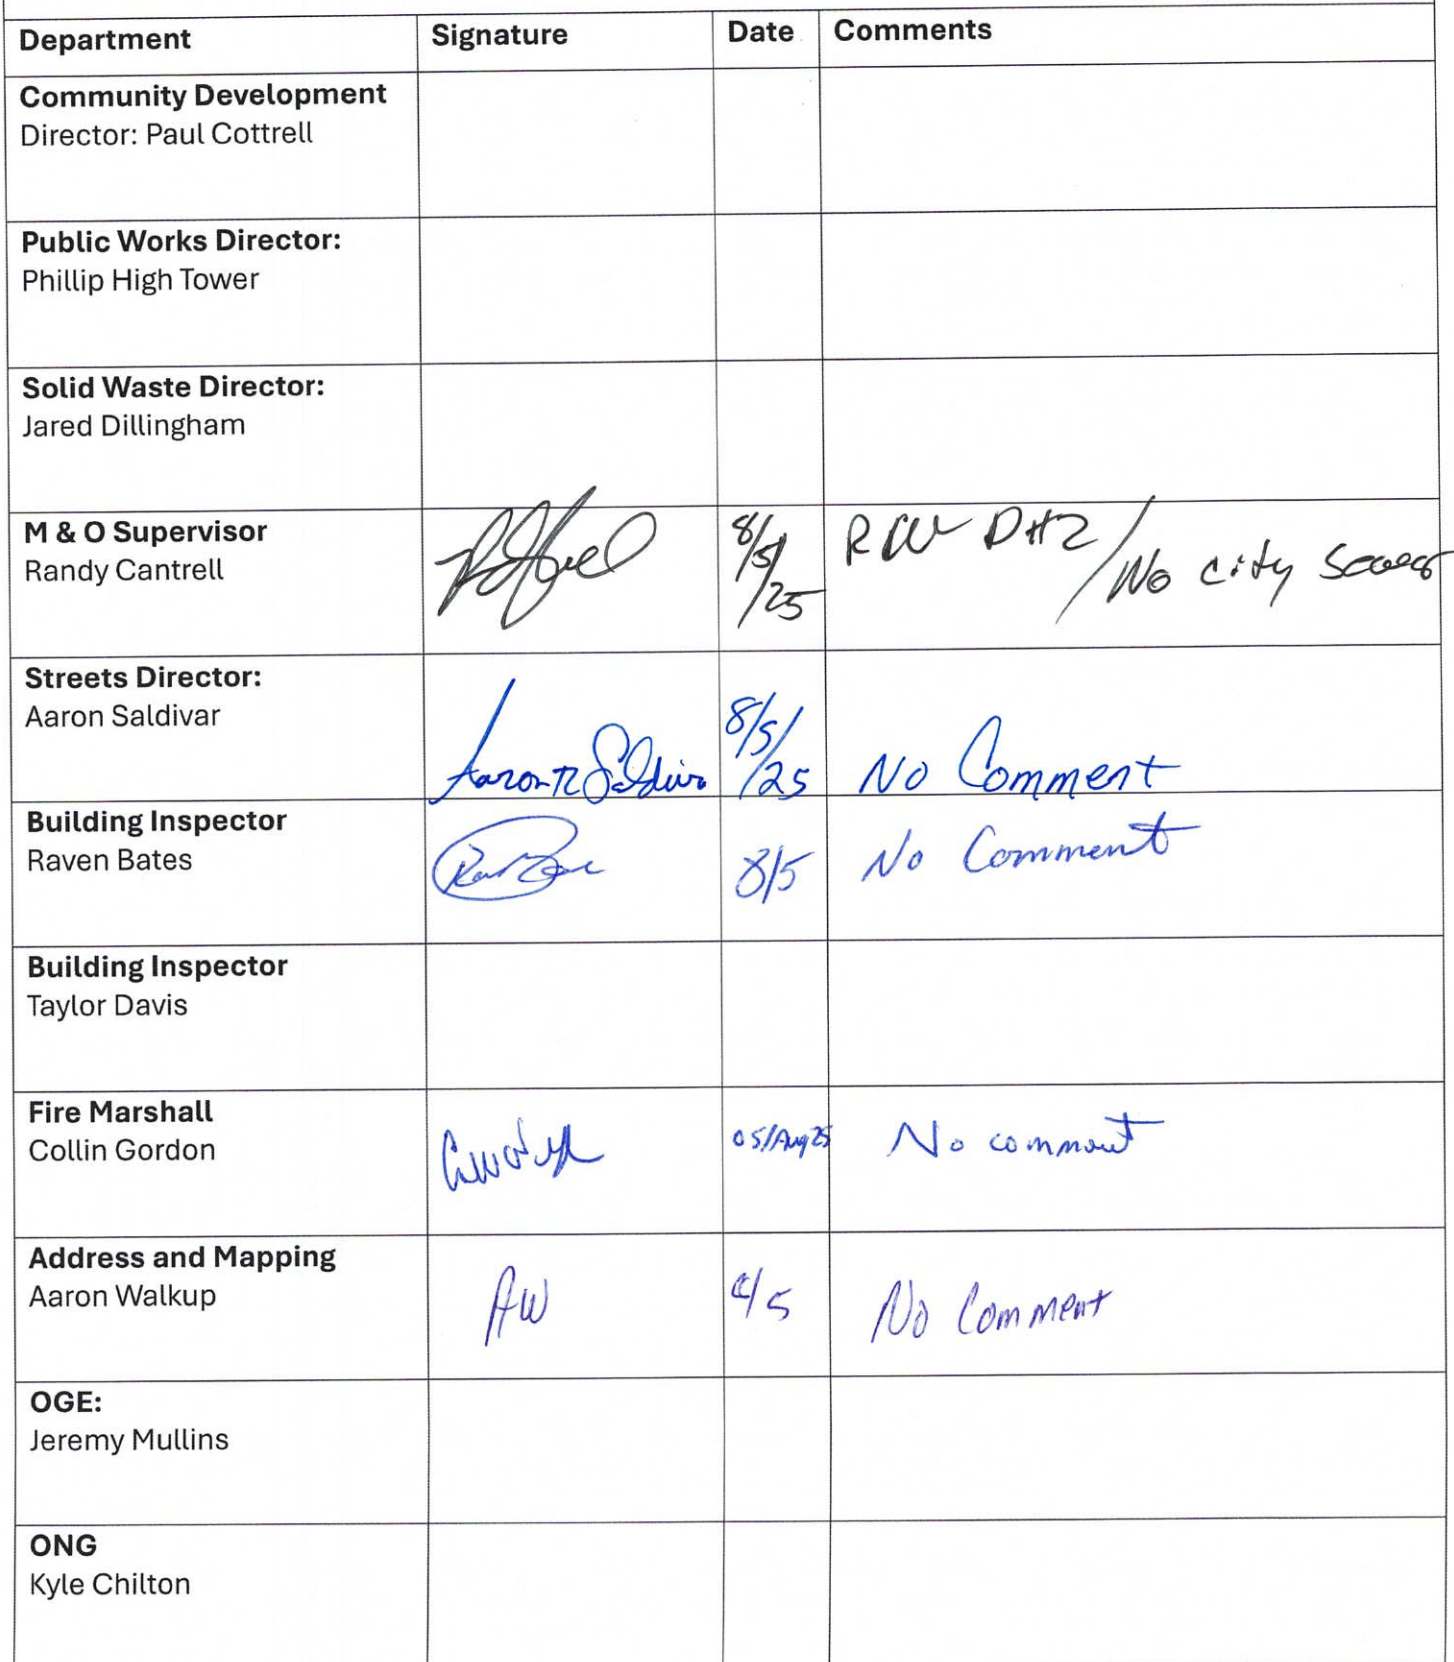 Department Signature Date Comments
Community Development
Director: Paul Cottrell
Public Works Director:
Phillip High Tower
Solid Waste Director:
Jared Dillingham
M & O Supervisor
Randy Cantrell
8/5/25
No city
Streets Director:
Aaron Saldivar
Aaron R Saldivar 8/5/25 No Comment
Building Inspector
Raven Bates
8/5 No Comment
Building Inspector
Taylor Davis
Fire Marshall
Collin Gordon
05/Aug25 No comment
Address and Mapping
Aaron Walkup
AW No Comment
OGE:
Jeremy Mullins
ONG
Kyle Chilton